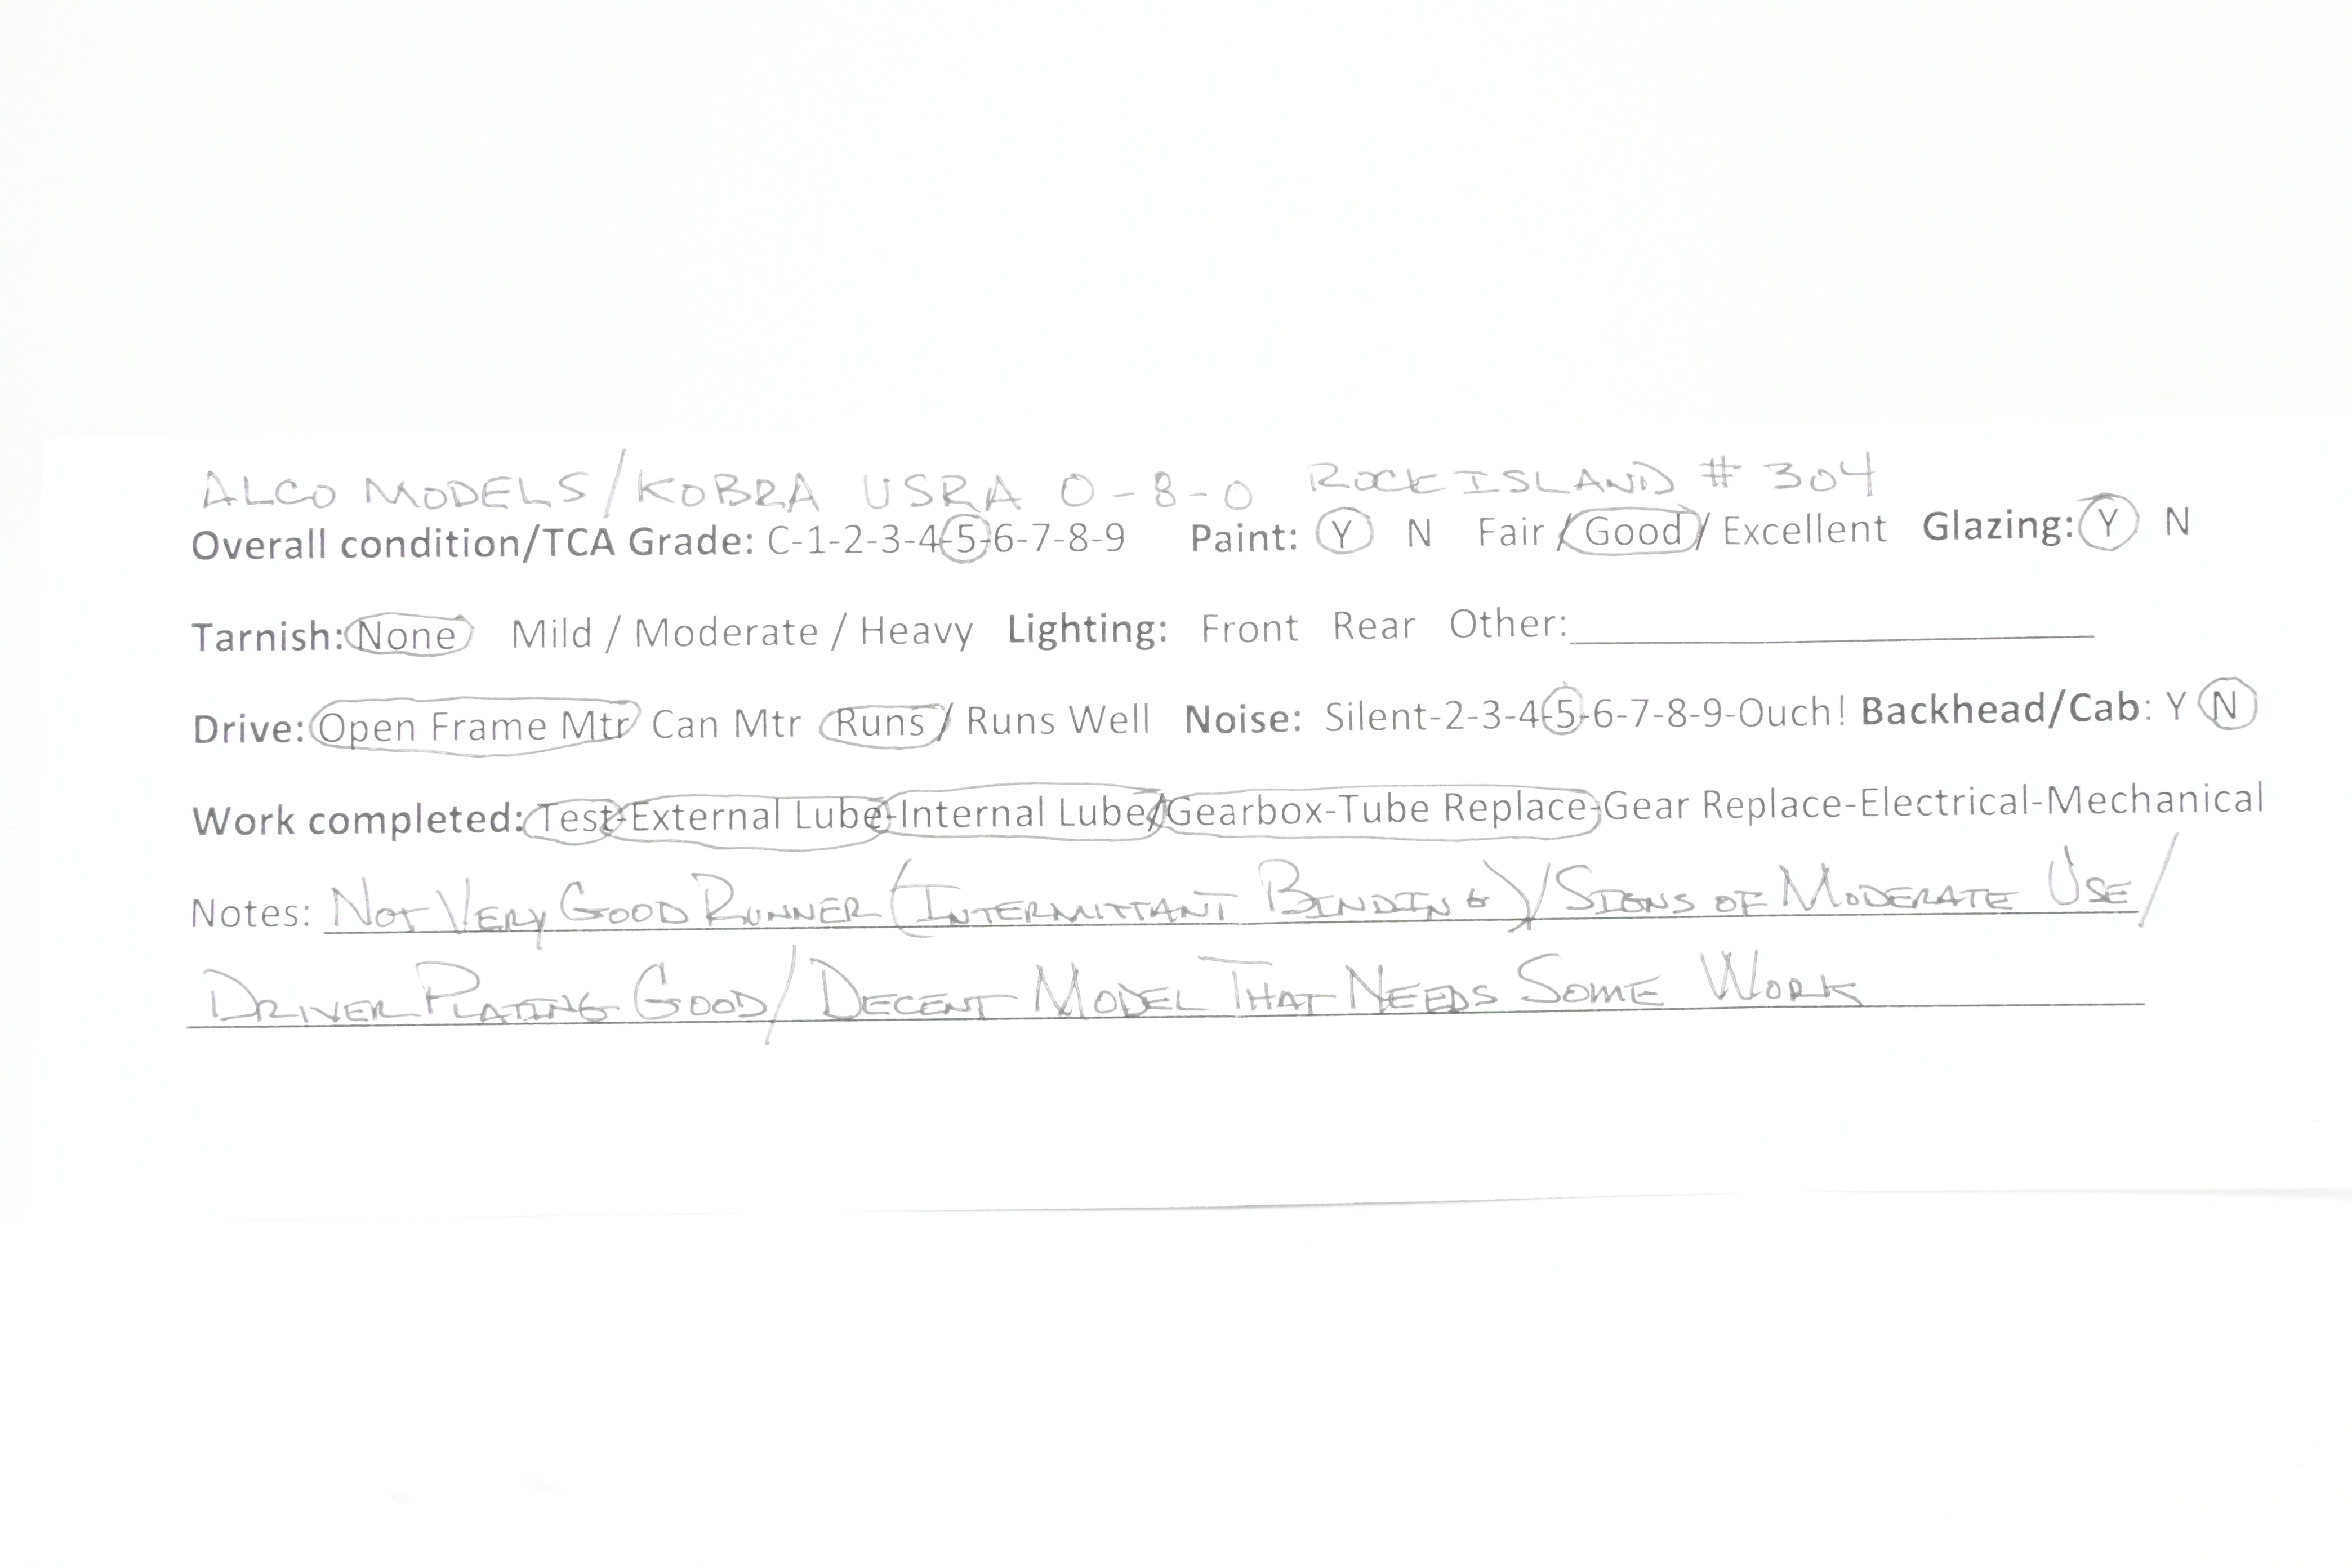 ALCO MODELS/KOBRA USRA 0-8-0 ROCK ISLAND # 304
Overall condition/TCA Grade: C-1-2-3-4-5-6-7-8-9 Paint: Y N Fair / Good / Excellent Glazing: Y N
Tarnish: None Mild / Moderate / Heavy Lighting: Front Rear Other:
Drive: Open Frame Mtr Can Mtr Runs / Runs Well Noise: Silent-2-3-4-5-6-7-8-9-Ouch! Backhead/Cab: Y N
Work completed: Test-External Lube-Internal Lube/Gearbox-Tube Replace-Gear Replace-Electrical-Mechanical
Notes: NOT VERY GOOD RUNNER (INTERMITTANT BINDING)/SIGNS OF MODERATE USE/
DRIVER PLATING GOOD/DECENT MODEL THAT NEEDS SOME WORK